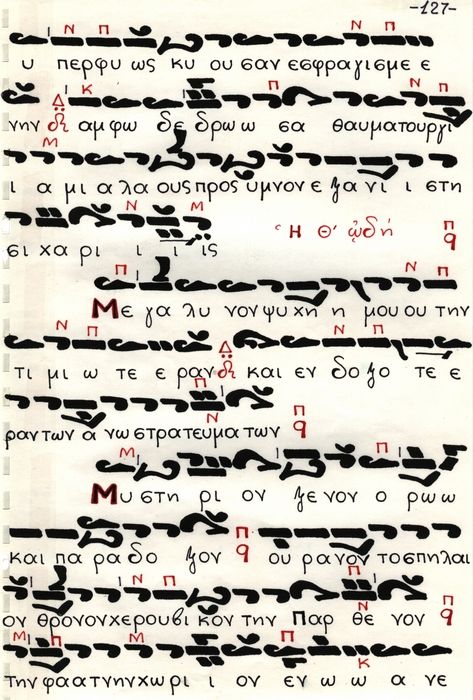 -127-
υ περφυ ως κυ ου σαν εσφραγισμε ε
νην αμφω δε δρω ω σα θαυματουργι
ι α μι α λα ους προς υμνον ε ξα νι ι στη
σι χαρι ι ι ις
Ἡ Θ΄ ᾠδή
Με γα λυ νον ψυχη η μου ου την
τι μι ω τε ε ραν και εν δο ξο τε ε
ραν των α νω στρατευμα των
Μυ στη ρι ον ξενον ο ρω ω
και πα ρα δο ξον ου ρανον το σπηλαι
ον θρονον χερουβι κον την Παρ θε νον
την φα α τνην χωρι ι ον εν ω ω α νε